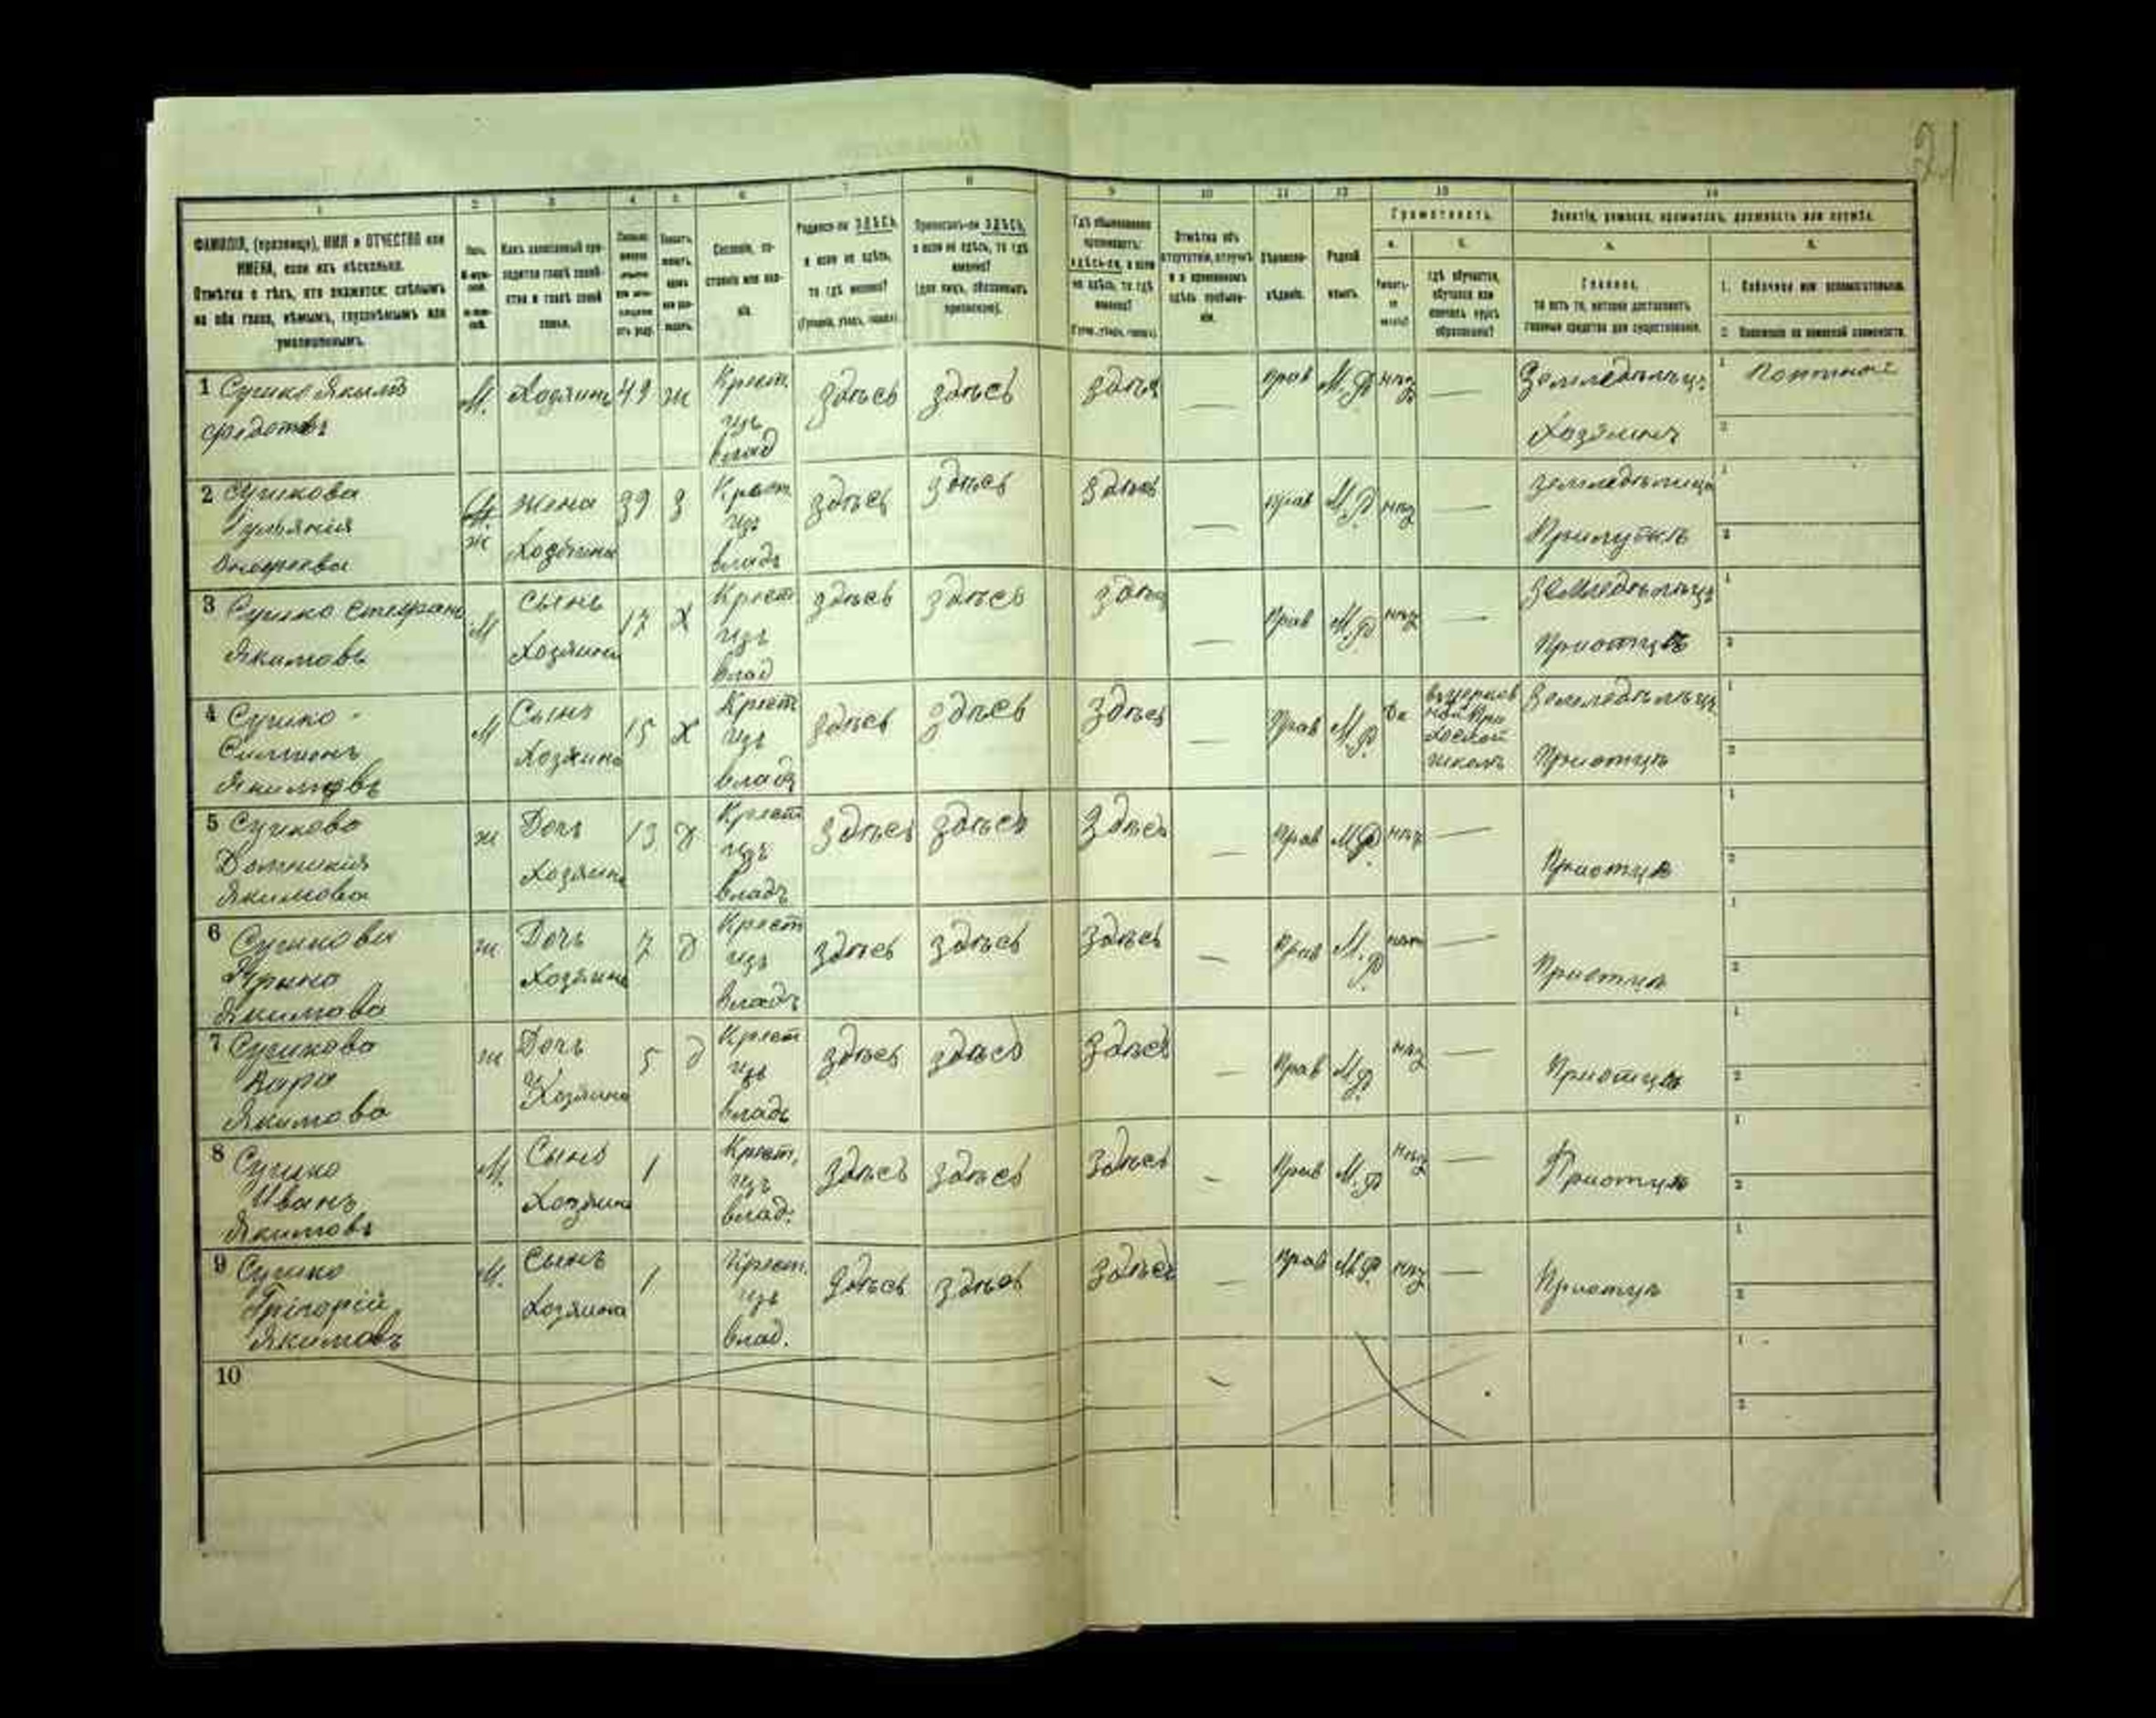 21
1 2 3 4 5 6 7 8 9 10 11 12 13 14
ФАМИЛІЯ, (прозвище), ИМЯ и ОТЧЕСТВО или
ИМЕНА, если ихъ нѣсколько.
Отмѣтка о тѣхъ, кто окажется: слѣпымъ
на оба глаза, нѣмымъ, глухонѣмымъ или
умалишеннымъ.
Полъ.
Какъ записанный при-
ходится главѣ хозяй-
ства и главѣ своей
семьи.
Сословіе, со-
стояніе или зва-
ніе.
Родился-ли ЗДѢСЬ,
а если не здѣсь,
то гдѣ именно?
(Губернія, уѣздъ, городъ)
Приписанъ-ли ЗДѢСЬ,
а если не здѣсь, то гдѣ
именно?
(для лицъ, обязанныхъ
припискою).
Гдѣ обыкновенно
проживаетъ:
здѣсь-ли, а если
не здѣсь, то гдѣ
именно?
Отмѣтка объ
отсутствіи, отлучкѣ
и о временномъ
здѣсь пребыва-
ніи.
Вѣроиспо-
вѣданіе.
Родной
языкъ.
Грамотность.
а. б.
гдѣ обучается,
обучался или
кончилъ курсъ
образованія?
Занятіе, ремесло, промыселъ, должность или служба.
а. б.
Главное,
то есть то, которое доставляетъ
главныя средства для существованія.
1. Побочное или вспомогательное.
2. Положеніе по воинской повинности.
1 Сушко Якимъ М. Хозяинъ 49 ж Крест. здѣсь здѣсь здѣсь — Прав М.Р нѣт — Земледѣлецъ 1
Федотовъ изъ Хозяинъ 2
влад
2 Сушкова жена 39 З Крест здѣсь здѣсь здѣсь — Прав М.Р нѣт — земледѣлица 1
ж Хозяина изъ 2
владъ
3 Сушко Стефанъ М сынъ 17 Х Крест здѣсь здѣсь здѣсь — Прав М.Р нѣт — Земледѣлецъ 1
Якимовъ Хозяина изъ Приотцѣ 2
влад
4 Сушко М Сынъ 15 Х Крест здѣсь здѣсь здѣсь — Прав М.Р Да Земледѣлецъ 1
Симеонъ Хозяина изъ школѣ Приотцѣ 2
Якимовъ владъ
5 Сушкова ж Дочь 13 Д Крест здѣсь здѣсь здѣсь — Прав МР нѣт — 1
Домникія Хозяина изъ Приотцѣ 2
Якимова владъ
6 Сушкова ж Дочь 7 Д Крест здѣсь здѣсь здѣсь — Прав М.Р нѣт — 1
Ирина Хозяина изъ Приотцѣ 2
Якимова владъ
7 Сушкова ж Дочь 5 Д Крест здѣсь здѣсь здѣсь — Прав М.Р нѣт — 1
Хозяина изъ Приотцѣ 2
Якимова владъ
8 Сушко М. Сынъ 1 Крест. здѣсь здѣсь здѣсь — Прав М.Р нѣт — 1
Иванъ Хозяина изъ Приотцѣ 2
Якимовъ влад.
9 Сушко М. Сынъ 1 Крест. здѣсь здѣсь здѣсь — Прав М.Р нѣт — 1
Григорій Хозяина изъ Приотцѣ 2
Якимовъ влад.
10 — 1
2